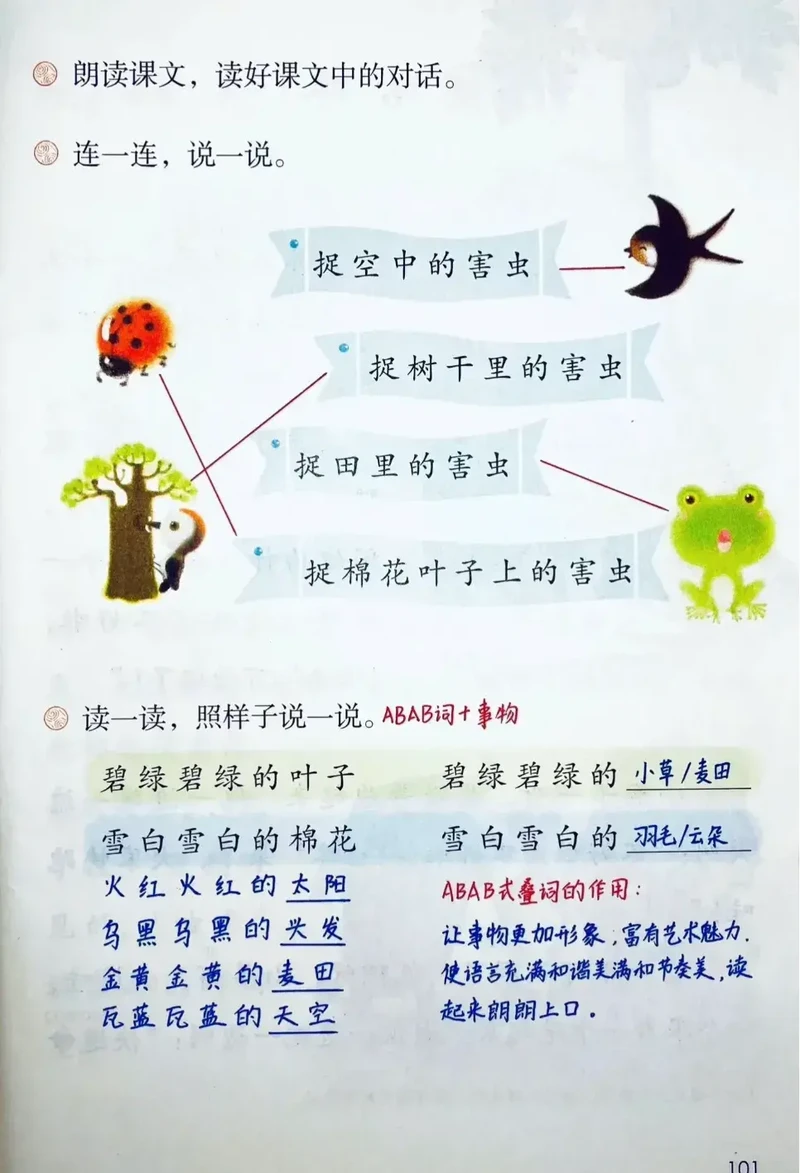 朗读课文，读好课文中的对话。
连一连，说一说。
捉空中的害虫
捉树干里的害虫
捉田里的害虫
捉棉花叶子上的害虫
读一读，照样子说一说。ABAB词+事物
碧绿碧绿的叶子 碧绿碧绿的 小草/麦田
雪白雪白的棉花 雪白雪白的 羽毛/云朵
火红火红的太阳
乌黑乌黑的头发
金黄金黄的麦田
瓦蓝瓦蓝的天空
ABAB式叠词的作用：
让事物更加形象，富有艺术魅力.
使语言充满和谐美满和节奏美，读
起来朗朗上口。
101